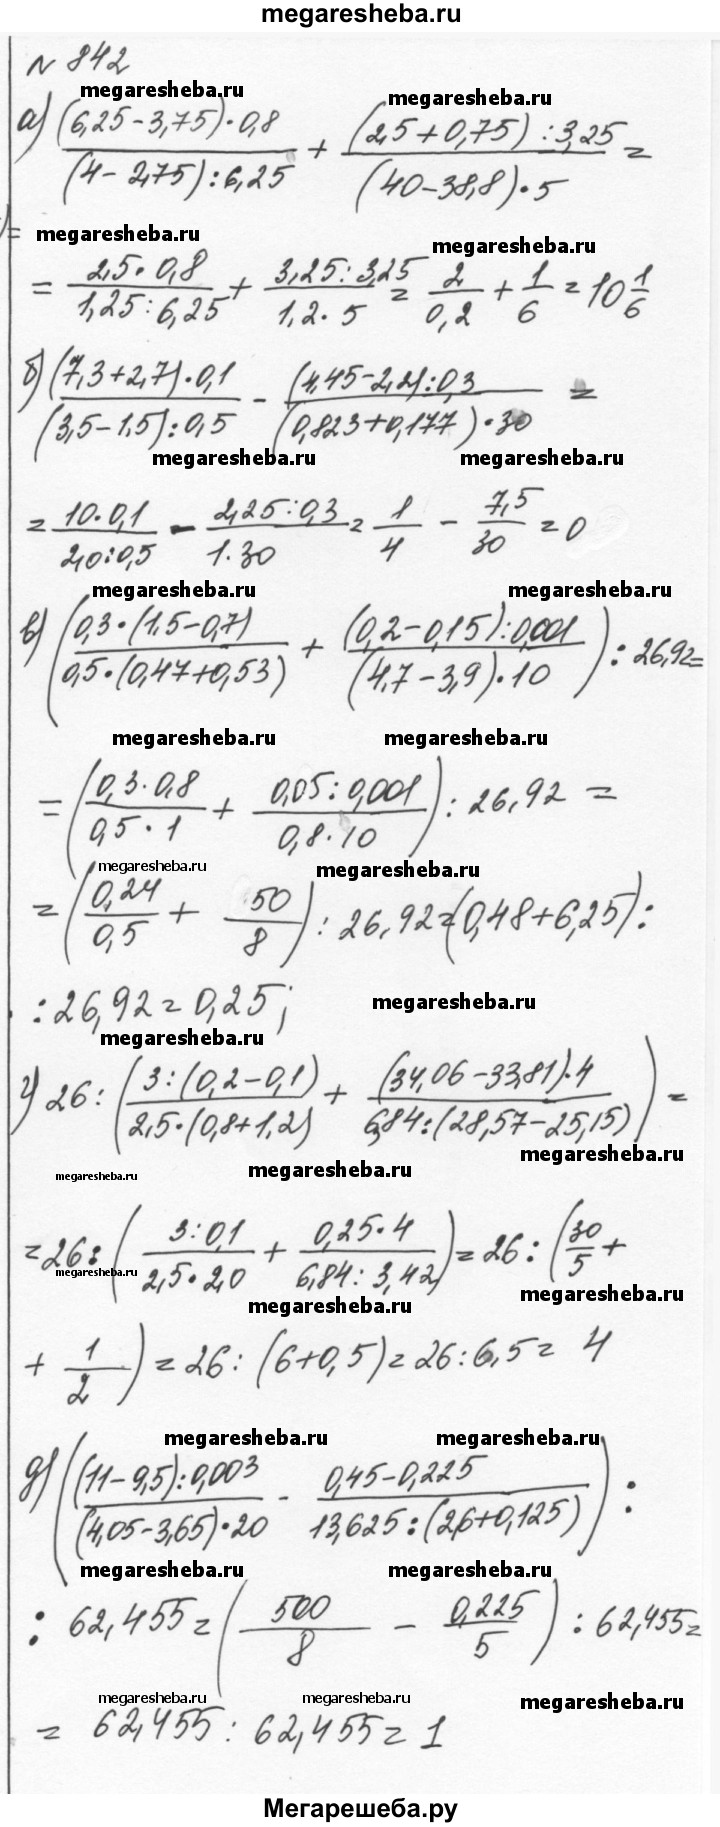 megaresheba.ru
№ 842
megaresheba.ru megaresheba.ru
а) (6,25-3,75)·0,8 / (4-2,75):6,25 + (2,5+0,75):3,25 / (40-38,8)·5 =
megaresheba.ru megaresheba.ru
= 2,5·0,8 / 1,25:6,25 + 3,25:3,25 / 1,2·5 = 2/0,2 + 1/6 = 10 1/6
б) (7,3+2,7)·0,1 / (3,5-1,5):0,5 - (4,45-2,2):0,3 / (0,823+0,177)·30 =
megaresheba.ru megaresheba.ru
= 10·0,1 / 2,0:0,5 - 2,25:0,3 / 1·30 = 1/4 - 7,5/30 = 0
megaresheba.ru megaresheba.ru
в) (0,3·(1,5-0,7) / 0,5·(0,47+0,53) + (0,2-0,15):0,001 / (4,7-3,9)·10) : 26,92=
megaresheba.ru megaresheba.ru
= (0,3·0,8 / 0,5·1 + 0,05:0,001 / 0,8·10) : 26,92 =
megaresheba.ru megaresheba.ru
= (0,24/0,5 + 50/8) : 26,92=(0,48+6,25):
:26,92=0,25;
megaresheba.ru
megaresheba.ru
г) 26:(3:(0,2-0,1) / 2,5·(0,8+1,2) + (34,06-33,81)·4 / 6,84:(28,57-25,15)) =
megaresheba.ru megaresheba.ru megaresheba.ru
=26:(3:0,1 / 2,5·2,0 + 0,25·4 / 6,84:3,42) = 26:(30/5 +
megaresheba.ru megaresheba.ru megaresheba.ru
+ 1/2) = 26:(6+0,5)=26:6,5= 4
megaresheba.ru megaresheba.ru
д) ((11-9,5):0,003 / (4,05-3,65)·20 - 0,45-0,225 / 13,625:(2,6+0,125)) :
megaresheba.ru megaresheba.ru
: 62,455=(500/8 - 0,225/5) : 62,455=
megaresheba.ru megaresheba.ru megaresheba.ru
= 62,455:62,455=1
Мегарешеба.ру